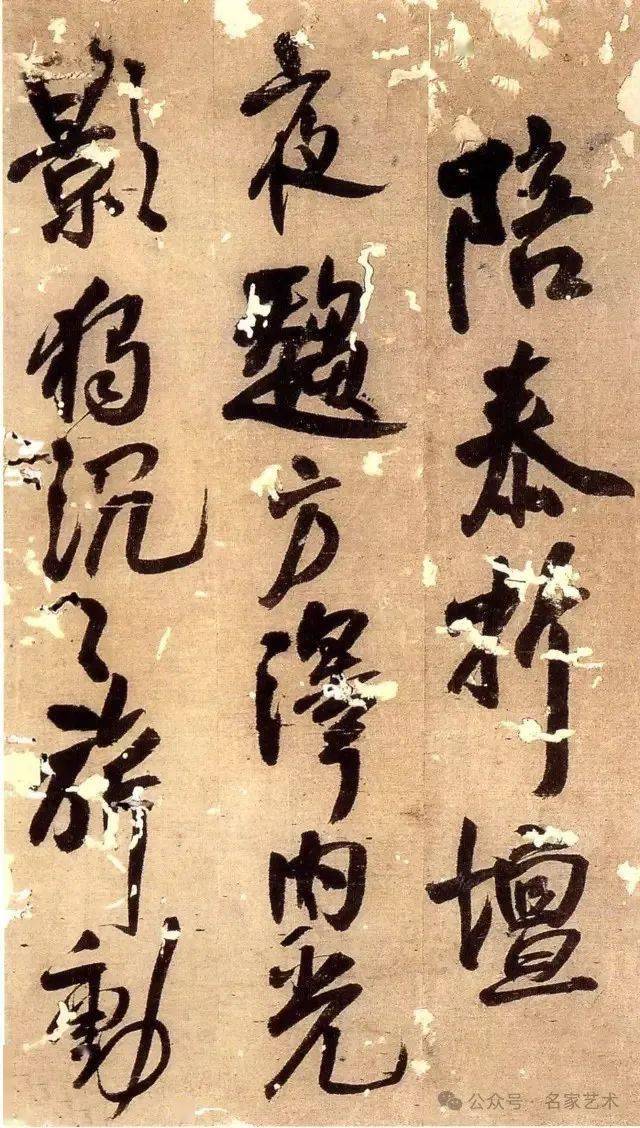 陪泰折壇
夜趨方澤內光
影獨沉々旂動
公众号 · 名家艺术